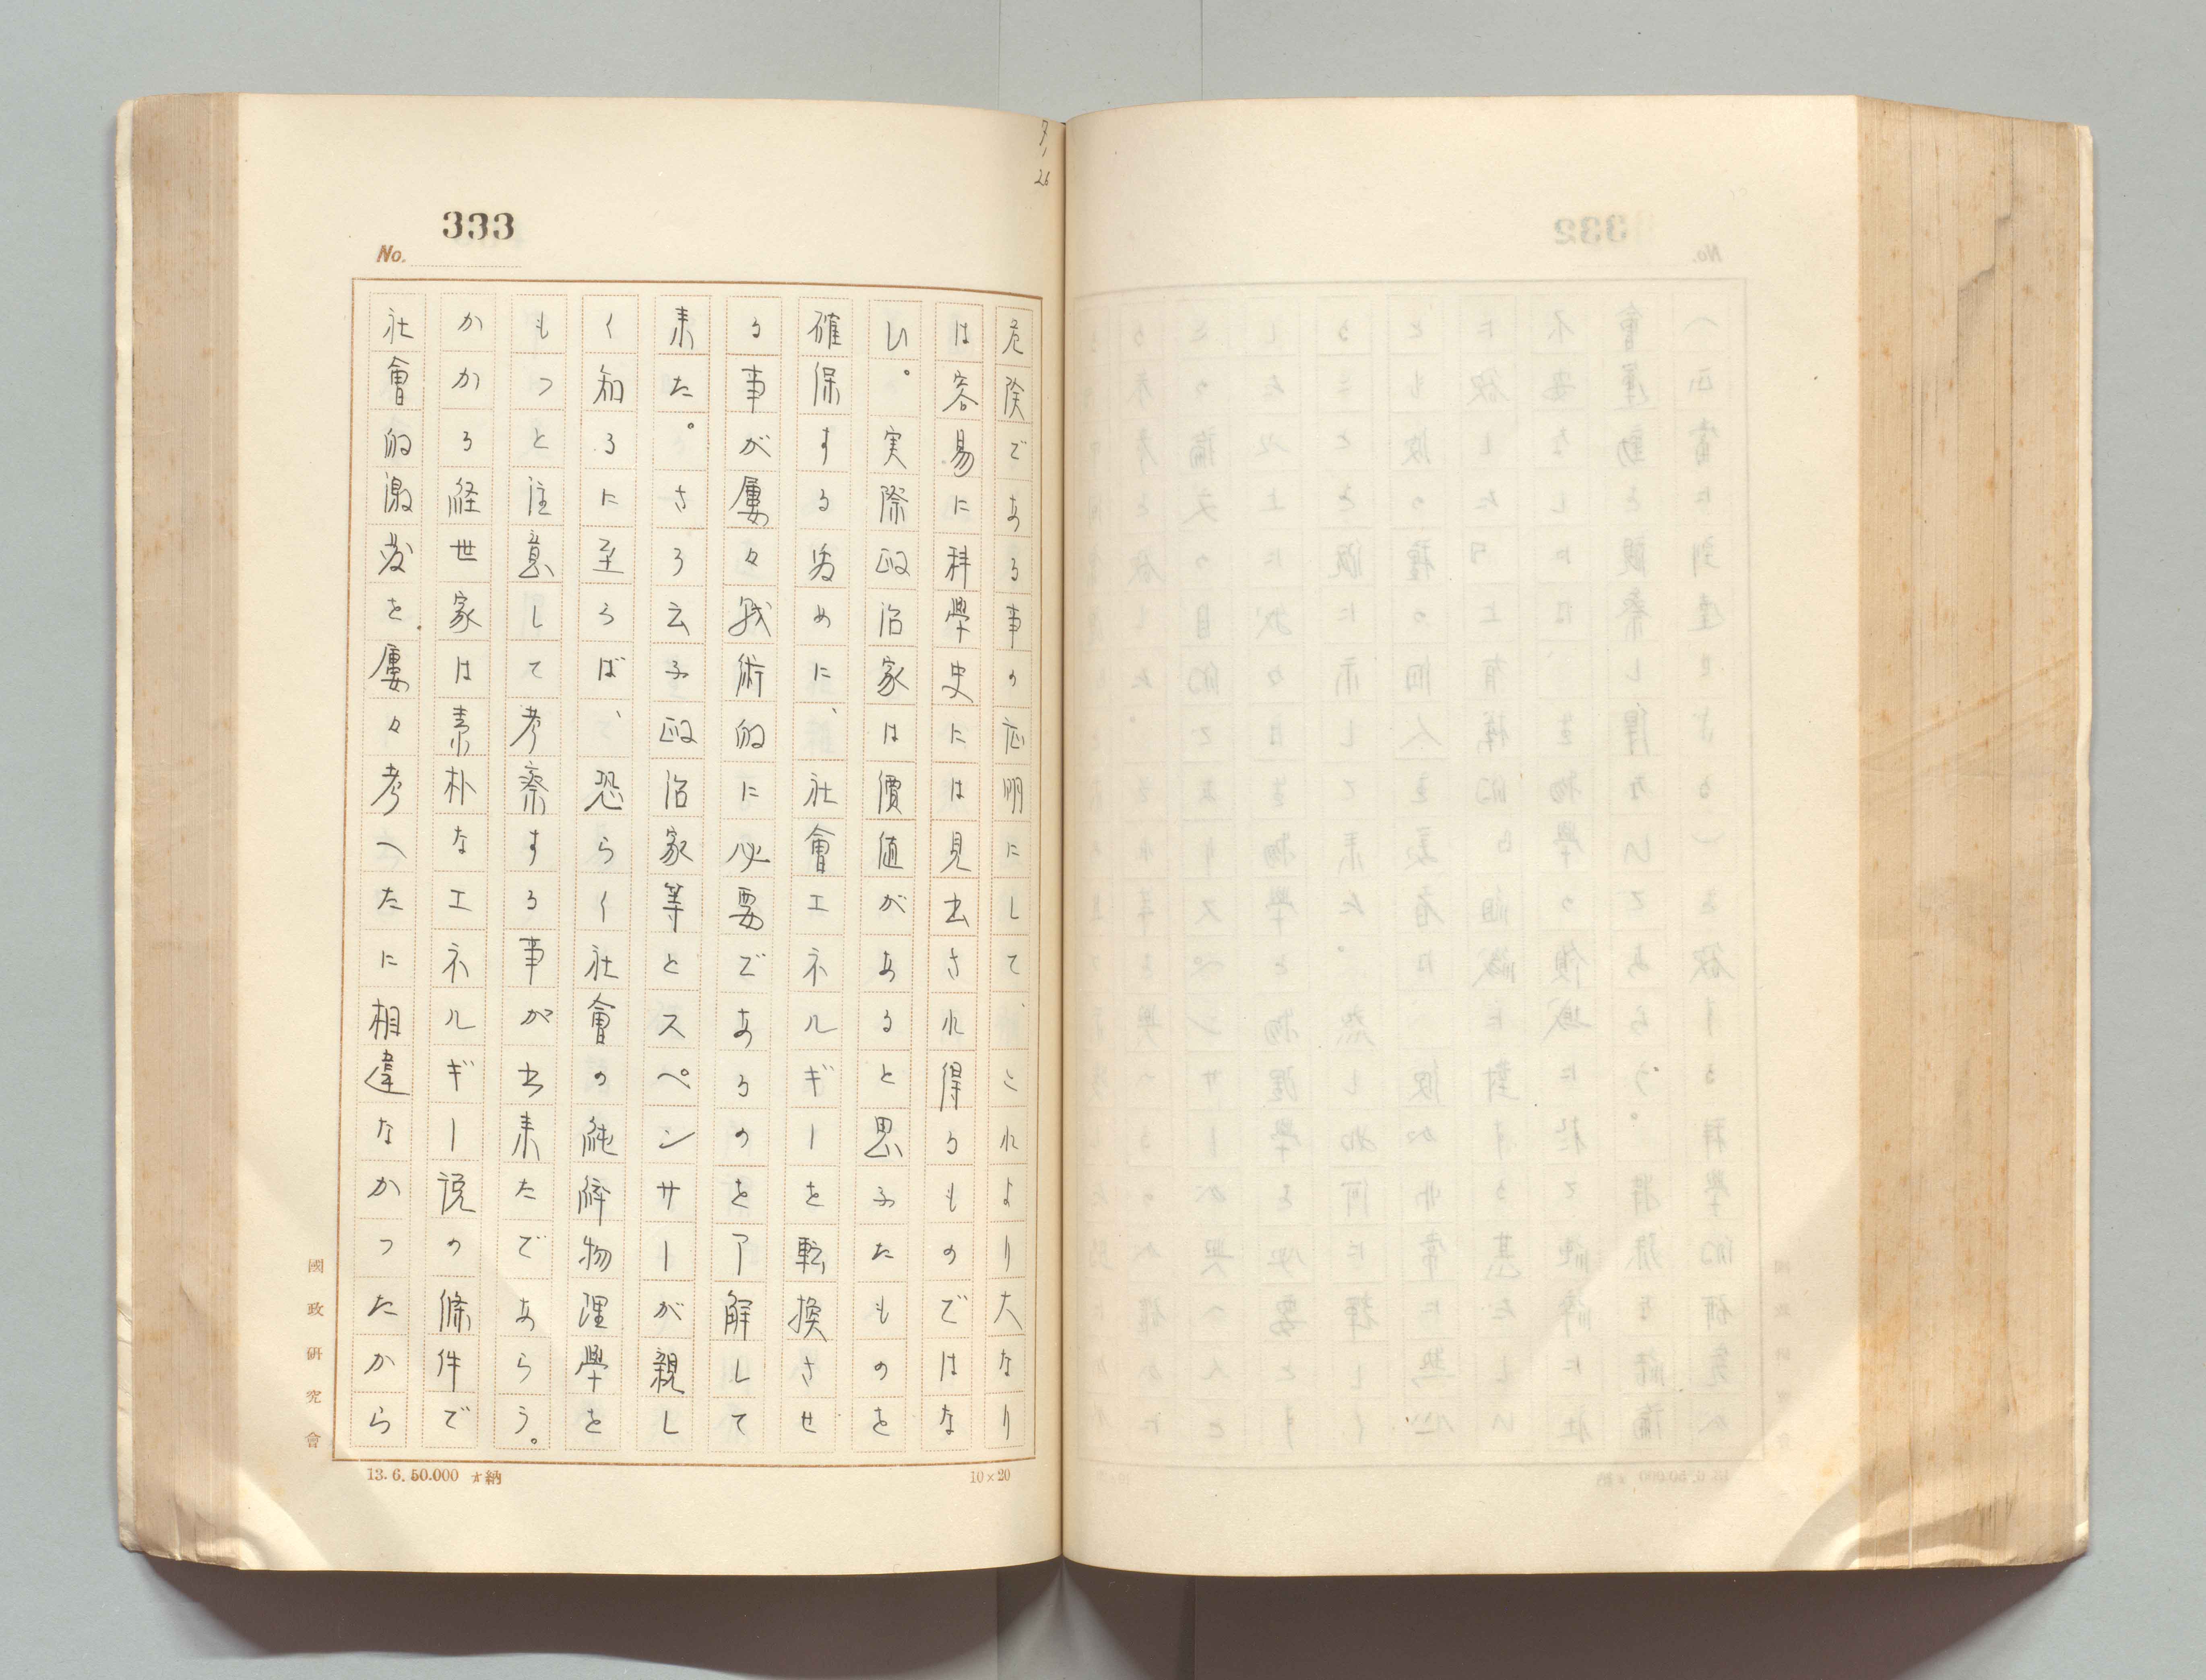 7/26
333
No.
危険である事の証明にして、これより大なり
は容易に科學史には見出され得るものではな
い。実際政治家は價値があると思ふたものを
確保する為めに、社會エネルギーを転換させ
る事が屡々戦術的に必要であるのを了解して
来た。さろ云ふ政治家等とスペンサーが親し
く知るに至らば、恐らく社會の純粋物理學を
もつと注意して考察する事が出来たであらう。
かかる経世家は素朴なエネルギー説の條件で
社會的激変を屡々考へたに相違なかつたから
國政研究會
13.6.50.000 納
10×20